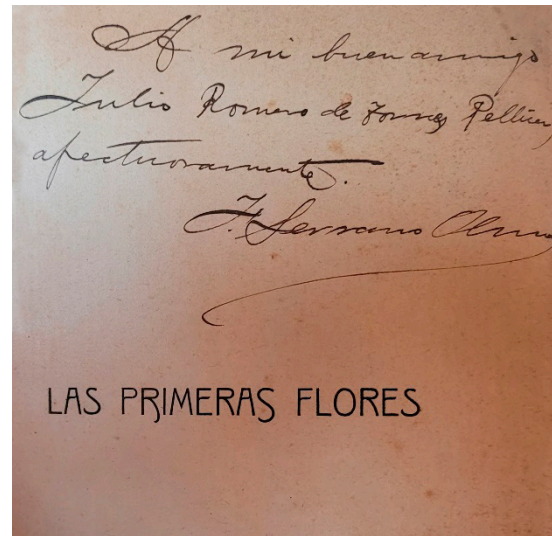 A mi buen amigo
Julio Romero de Torres Pellicer,
afectuosamente.
F. Serrano Olmo
LAS PRIMERAS FLORES